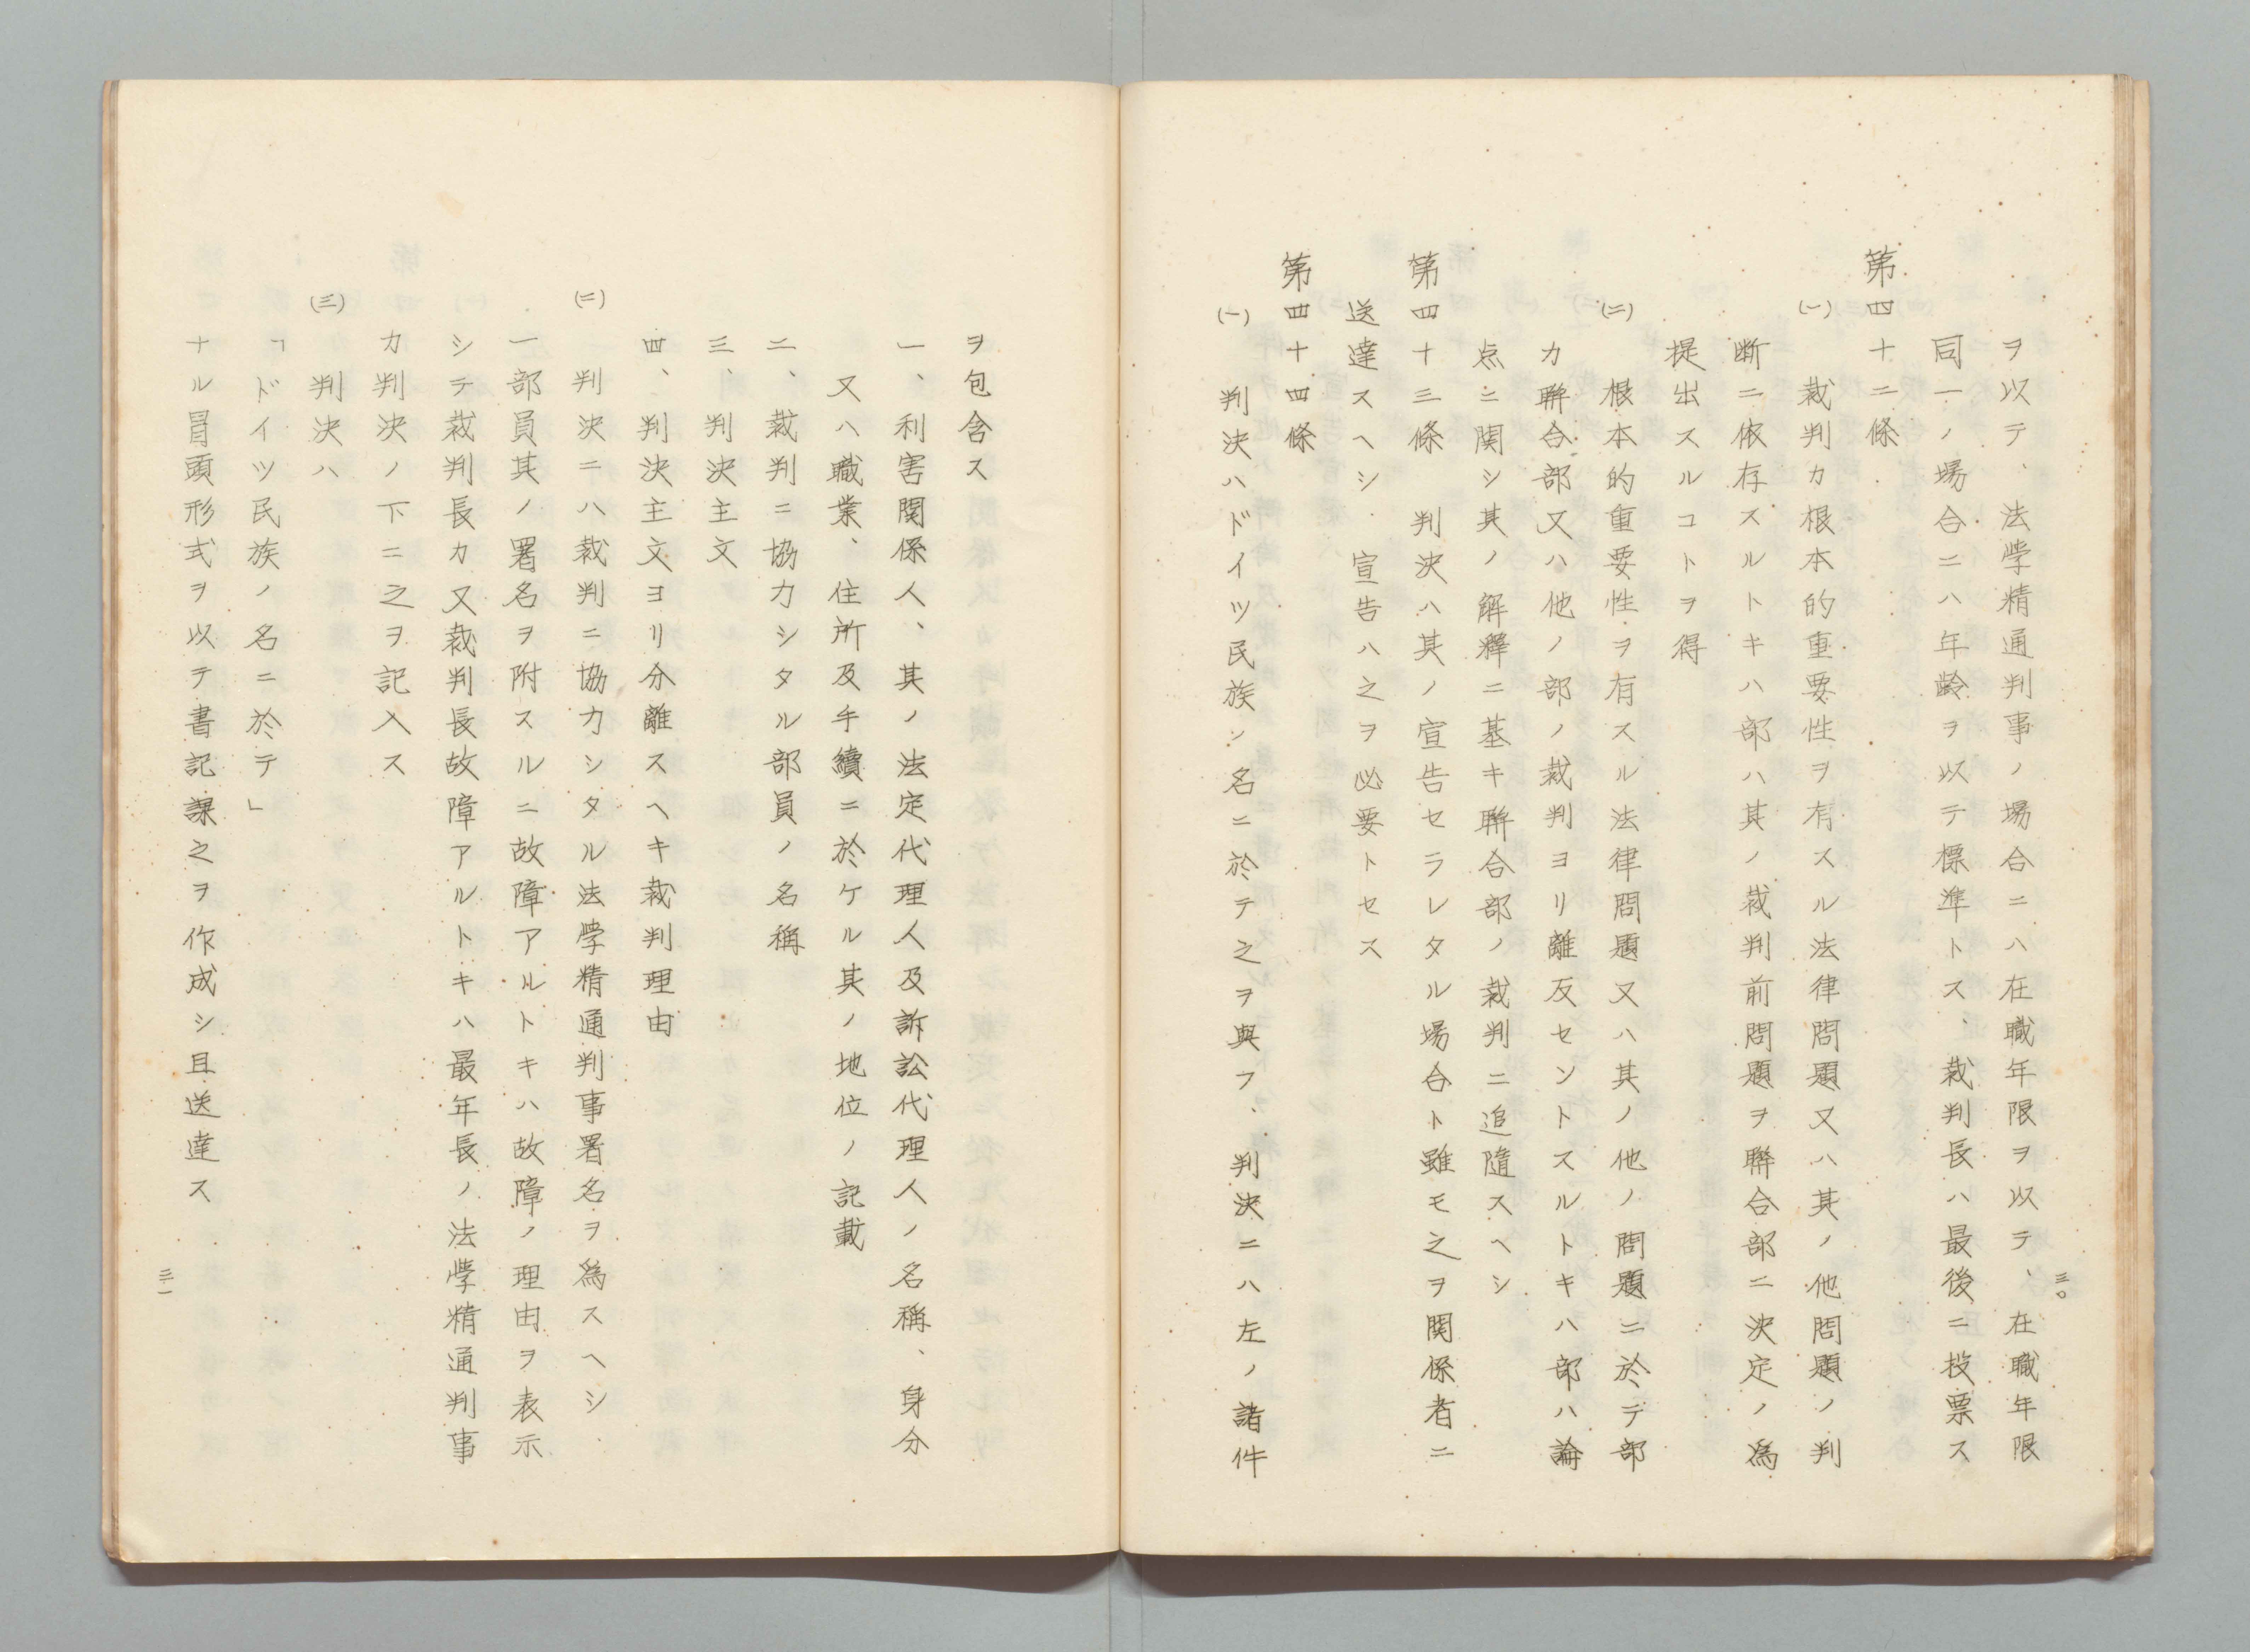 三〇
ヲ以テ、法學精通判事ノ場合ニハ在職年限ヲ以テ、在職年限
同一ノ場合ニハ年齢ヲ以テ標準トス、裁判長ハ最後ニ投票ス
第四十二條
(一) 裁判カ根本的重要性ヲ有スル法律問題又ハ其ノ他問題ノ判
断ニ依存スルトキハ部ハ其ノ裁判前問題ヲ聯合部ニ決定ノ爲
提出スルコトヲ得
(二) 根本的重要性ヲ有スル法律問題又ハ其ノ他ノ問題ニ於テ部
カ聯合部又ハ他ノ部ノ裁判ヨリ離反セントスルトキハ部ハ論
点ニ関シ其ノ解釋ニ基キ聯合部ノ裁判ニ追隨スヘシ
第四十三條 判決ハ其ノ宣告セラレタル場合ト雖モ之ヲ関係者ニ
送達スヘシ 宣告ハ之ヲ必要トセス
第四十四條
(一) 判決ハドイツ民族ノ名ニ於テ之ヲ與フ、判決ニハ左ノ諸件
ヲ包含ス
一、利害関係人、其ノ法定代理人及訴訟代理人ノ名稱、身分
又ハ職業、住所及手續ニ於ケル其ノ地位ノ記載
二、裁判ニ協力シタル部員ノ名稱
三、判決主文
四、判決主文ヨリ分離スヘキ裁判理由
(二) 判決ニハ裁判ニ協力シタル法學精通判事署名ヲ爲スヘシ
一部員其ノ署名ヲ附スルニ故障アルトキハ故障ノ理由ヲ表示
シテ裁判長カ又裁判長故障アルトキハ最年長ノ法學精通判事
カ判決ノ下ニ之ヲ記入ス
(三) 判決ハ
「ドイツ民族ノ名ニ於テ」
ナル冒頭形式ヲ以テ書記課之ヲ作成シ且送達ス
三一